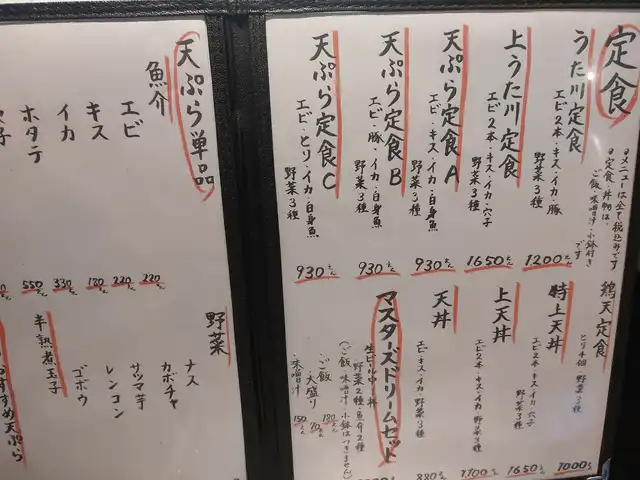 定食
●メニューは全て税込みです
●定食・丼物は、
ご飯・味噌汁・小鉢付き
です
うた川定食
エビ2本・キス・イカ・豚
野菜3種
1200えん
上うた川定食
エビ2本・キス・イカ・穴子
野菜3種
1650えん
天ぷら定食A
エビ・キス・イカ・白身魚
野菜3種
930えん
天ぷら定食B
エビ・豚・イカ・白身魚
野菜3種
930えん
天ぷら定食C
エビ・とり・イカ・白身魚
野菜3種
930えん
鶏天定食
とり4個 野菜3種
1000えん
特上天丼
エビ2本・キス・イカ・穴子
野菜3種
1650えん
上天丼
エビ2本・キス・イカ 野菜3種
1100えん
天丼
エビ・キス・イカ 野菜3種
880えん
マスターズドリームセット
生ビール中・丼
野菜2種・魚介2種
(ご飯 味噌汁 小鉢はつきません)
ご飯 180えん
・大盛り 70えん
味噌汁 150えん
天ぷら単品
魚介
エビ 220えん
キス 220えん
イカ 180えん
ホタテ 330えん
穴子 550えん
野菜
ナス
カボチャ
サツマ芋
レンコン
ゴボウ
半熟煮玉子
おすすめ天ぷら